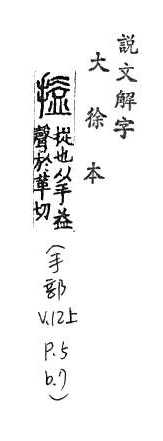 說文解字
大徐本
搤
捉也从手益
聲於革切
(手部 V.12上 P.5 b.7)